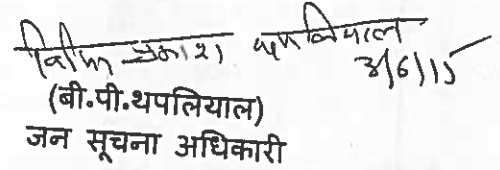 विपिन प्रकाश थपलियाल
3/6/15
(बी.पी.थपलियाल)
जन सूचना अधिकारी